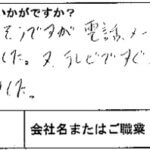 いかがですか?
そうですが 電話、メー
した。又、テレビですぐ
した。
会社名またはご職業